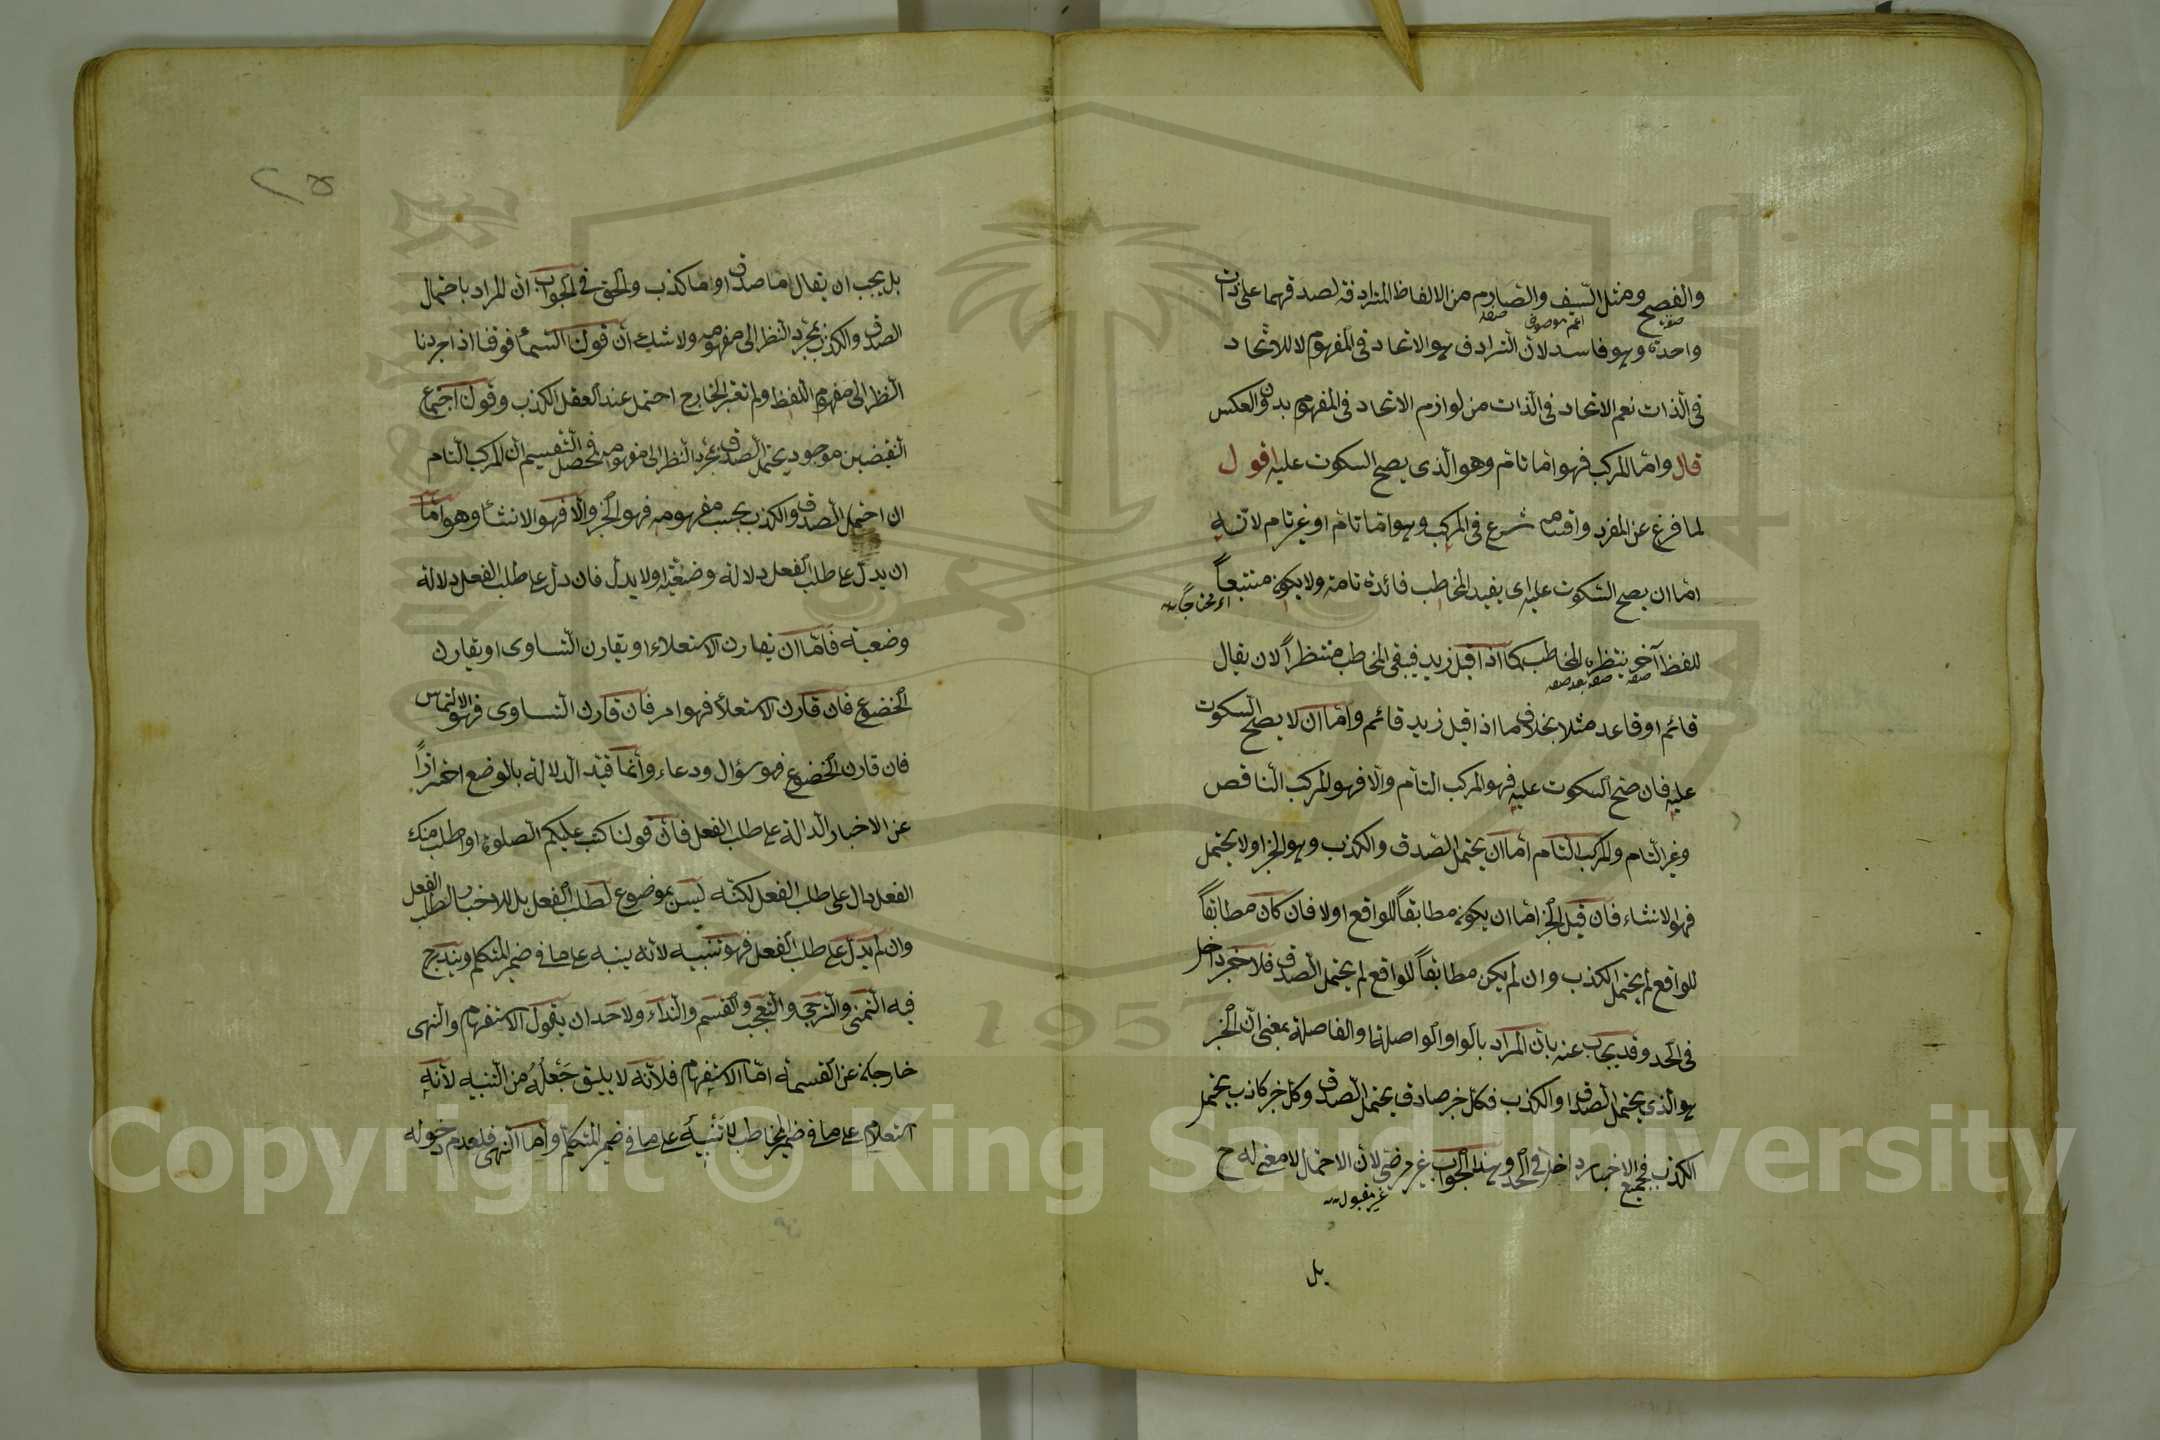 والفصيح ومثل السيف والصارم من الالفاظ المترادفة لصدقهما على ذات
صفة
اعم موصوف
صفة
واحدة وهو فاسد لان الترادف هو الاتحاد في المفهوم لا للاتحاد
في الذات نعم الاتحاد في الذات من لوازم الاتحاد في المفهوم بدون العكس
قال واما المركب فهو اما تام وهو الذي يصح السكوت عليه اقول
لما فرغ عن المفرد واقسامه شرع في المركب وهو اما تام او غير تام لانه
اما ان يصح السكوت عليه اى يفيد المخاطب فائدة تامة ولا يكون مستتبعاً
اى محتاجاً
للفظ آخر ينتظره المخاطب كما اذا قيل زيد فيبقى المخاطب منتظراً لان يقال
صفة
صفة بعد صفة
قائم او قاعد مثلا بخلاف ما اذا قيل زيد قائم واما ان لا يصح السكوت
عليه فان صح السكوت عليه فهو المركب التام والا فهو المركب الناقص
وغير التام والمركب التام اما ان يحتمل الصدق والكذب وهو الخبر او لا يحتمل
فهو الانشاء فان قيل الخبر اما ان يكون مطابقاً للواقع اولا فان كان مطابقاً
للواقع لم يحتمل الكذب وان لم يكن مطابقاً للواقع لم يحتمل الصدق فلا خبر داخل
في الحد وقد يجاب عنه بان المراد بالواو الواصلة او الفاصلة بمعنى ان الخبر
هو الذي يحتمل الصدق او الكذب فكل خبر صادق يحتمل الصدق وكل خبر كاذب يحتمل
الكذب فجميع الاخبار داخل في الحد وهذا الجواب غير مرضي لان الاحتمال لا معنى له ح
غير مقبول
بل
٢٥
بل يجب ان يقال اما صدق او اما كذب والحق في الجواب ان المراد باحتمال
الصدق والكذب بمجرد النظر الى مفهومه ولا شك ان قولنا السماء فوقنا اذا جردنا
النظر الى مفهوم اللفظ ولم نعتبر الخارج احتمل عند العقل الكذب وقولنا اجتماع
النقيضين موجود يحتمل الصدق بمجرد النظر الى مفهومه فمحصل التقسيم ان المركب التام
ان احتمل الصدق والكذب بحسب مفهومه فهو الخبر والا فهو الانشاء وهو اما
ان يدل على طلب الفعل دلالة وضعية او لا يدل فان دل على طلب الفعل دلالة
وضعية فاما ان يقارن الاستعلاء او يقارن التساوى او يقارن
الخضوع فان قارن الاستعلاء فهو امر فان قارن التساوى فهو الالتماس
فان قارن الخضوع فهو سؤال ودعاء وانما قيد الدلالة بالوضع احترازاً
عن الاخبار الدالة على طلب الفعل فان قولنا كتب عليكم الصلوة او اطلب منك
الفعل دال على طلب الفعل لكنه ليس بموضوع لطلب الفعل بل للاخبار بالطلب الفعل
وان لم يدل على طلب الفعل فهو تنبيه لانه ينبه على ما في ضمير المتكلم ويندرج
فيه التمنى والترجى والتعجب والقسم والنداء ولاحد ان يقول الاستفهام والنهى
خارجان عن القسمة اما الاستفهام فلانه لا يليق جَعْلُهُ من التنبيه لانه
استعلام على ما في ضمير المخاطب لا تنبيه على ما في ضمير المتكلم واما النهى فلعدم دخوله
Copyright © King Saud University
1957